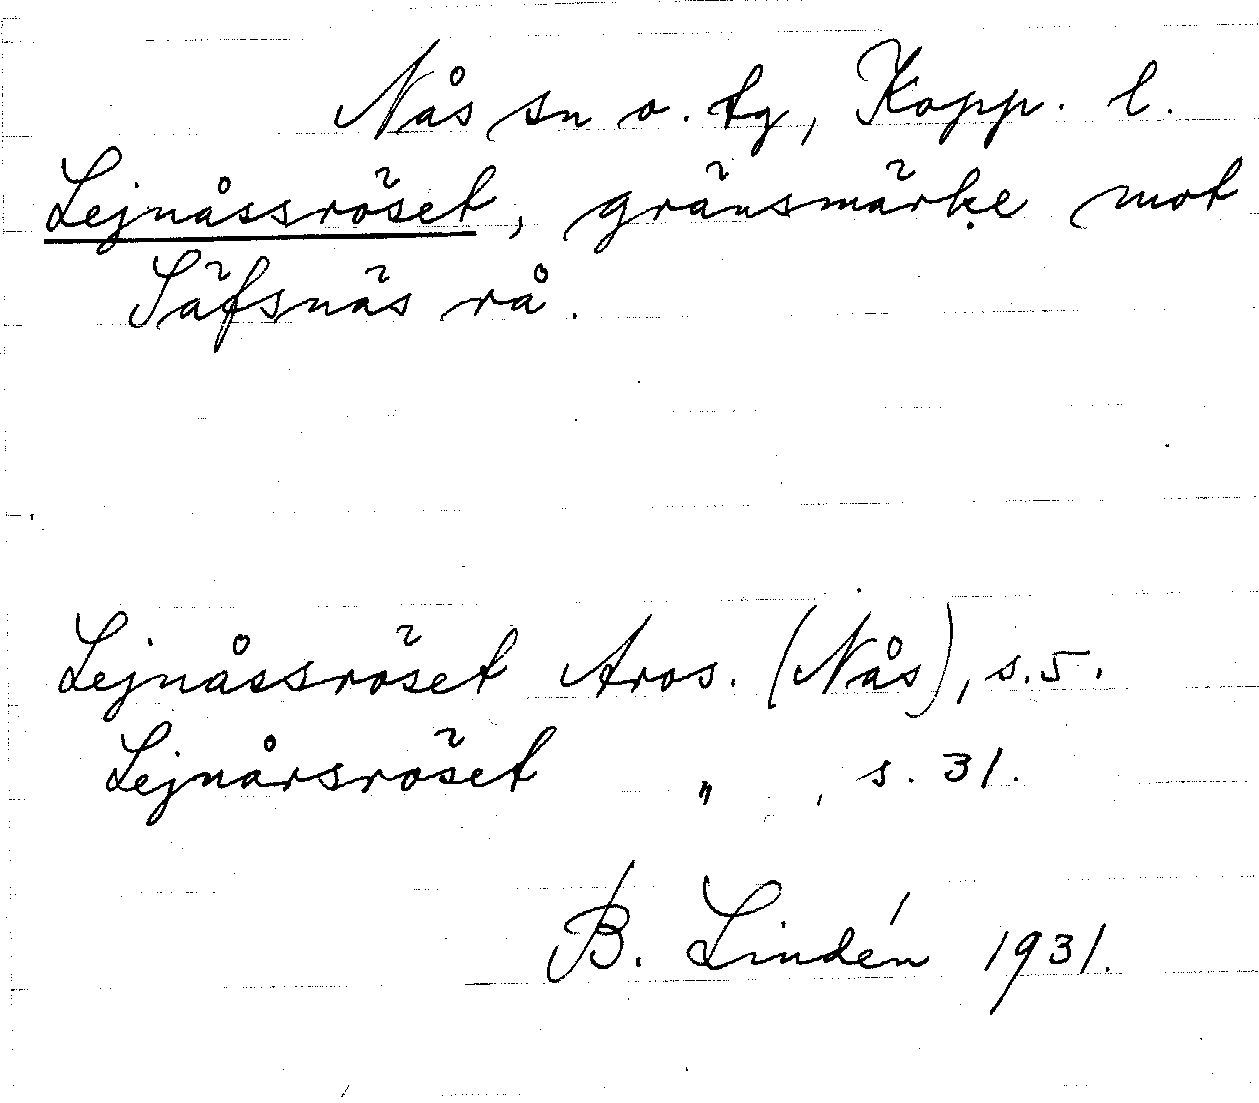 Nås sn o. tg, Kopp. l.
Lejnåssröset, gränsmärke mot
Säfsnäs rå.
Lejnåssröset Aros. (Nås), s. 5.
Lejnårsröset " , s. 31.
B. Lindén 1931.